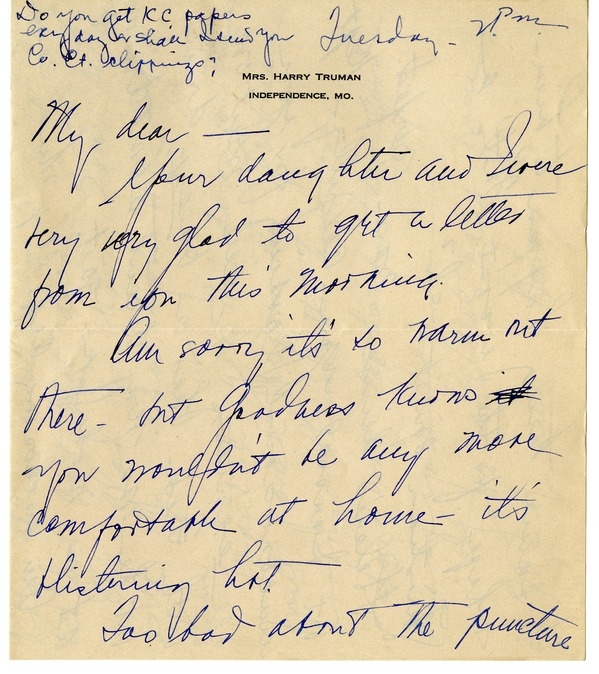 Do you get KC papers
every day or shall I send you
Co. Ct. clippings?
Tuesday - 2 P.m.
MRS. HARRY TRUMAN
INDEPENDENCE, MO.
My dear —
Your daughter and I were
very very glad to get a letter
from you this morning.
Am sorry it's so warm out
there - but goodness knows
you wouldn't be any more
comfortable at home - it's
blistering hot.
Too bad about the puncture